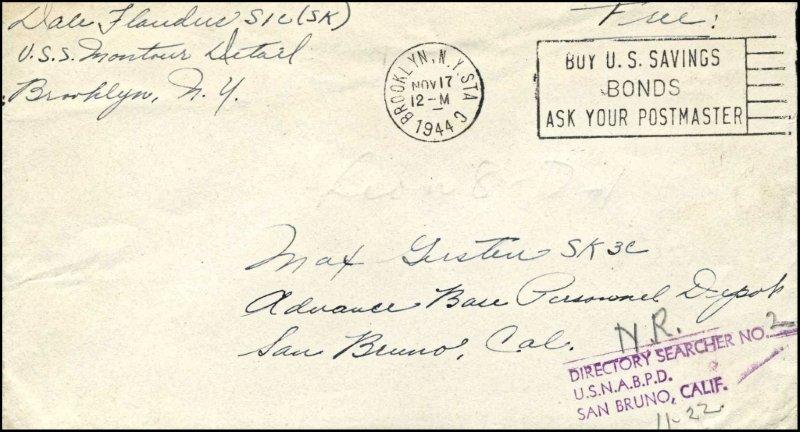 Dale Flanders S1c (SK)
U.S.S. Montour Detail
Brooklyn, N.Y.
Free:
BROOKLYN, N.Y. STA C
NOV 17
12-M
1944
BUY U.S. SAVINGS
BONDS
ASK YOUR POSTMASTER
Max Gersten SK3c
Advance Base Personnel Depot
San Bruno, Cal.
N.R.
DIRECTORY SEARCHER NO. 2
U.S.N.A.B.P.D.
SAN BRUNO, CALIF.
11-22